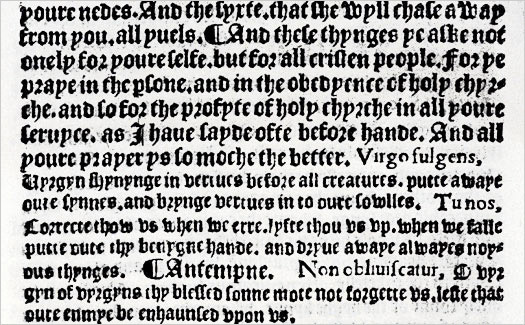 youre nedes. And the syxte, that she wyll chase away
from you, all yuels. ¶And these thynges ye aske not
onely for youre selfe, but for all cristen people. For ye
praye in the psone, and in the obedyence of holy chyr-
che, and so for the profyte of holy chyrche in all youre
seruyce, as I haue sayde ofte before hande. And all
youre prayer ys so moche the better. Virgo fulgens,
Uyrgyn shynynge in vertues before all creatures, putte awaye
oure synnes, and brynge vertues in to oure sowlles. Tu nos,
Correcte thow vs when we erre, lyfte thou vs vp, when we falle
putte oute thy benygne hande, and dryue awaye alwayes noy-
ous thynges. ¶Antempne. Non obliuiscatur, O vyr
gyn of vyrgyns thy blessed sonne mote not forgette vs, leste that
oure enmye be enhaunsed vpon vs,